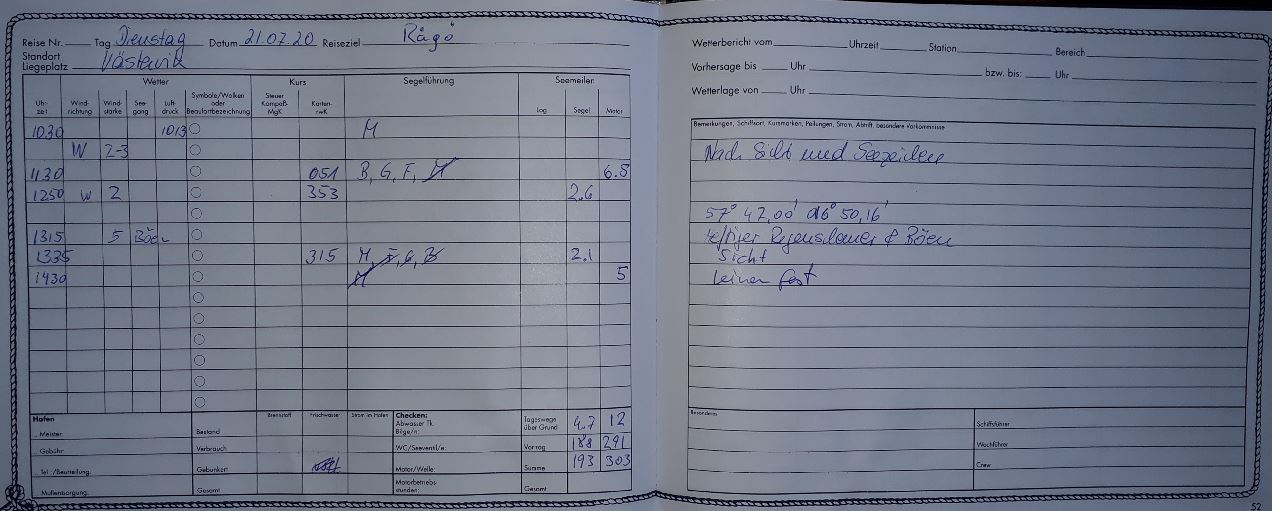 Reise Nr. Tag Dienstag Datum 21.07.20 Reiseziel Rågö
Standort
Liegeplatz Västervik
Wetter Kurs Segelführung Seemeilen
Uhr-zeit Wind-richtung Wind-stärke See-gang Luft-druck Symbole/Wolken oder Beaufortbezeichnung Steuer Kompaß-MgK Karten-rwK Log Segel Motor
1030 1013 M
W 2-3
1130 051 B, G, F, M 6.5
1250 W 2 353 2.6
1315 5 Böen
1335 315 M, F, G, B 2.1
1430 M 5
Hafen Brennstoff Frischwasser Strom im Hafen Checken: Tageswege über Grund 4.7 12
Meister: Bestand Abwasser Tk. Bilge/n:
Gebühr: Verbrauch WC/Seeventil/e: Vortrag 188 291
Tel.:/Beurteilung: Gebunkert Motor/Welle: Summe 193 303
Müllentsorgung: Gesamt Motorbetriebs-stunden: Gesamt
Wetterbericht vom Uhrzeit Station Bereich
Vorhersage bis Uhr bzw. bis: Uhr
Wetterlage von Uhr
Bemerkungen, Schiffsort, Kursmarken, Peilungen, Strom, Abtrift, besondere Vorkommnisse
Nach Sicht und Seezeichen
57° 47,00' 016° 50,16'
Regenschauer & Böen
Sicht
Leinen fest
Besonderes Schiffsführer
Wachführer
Crew
52